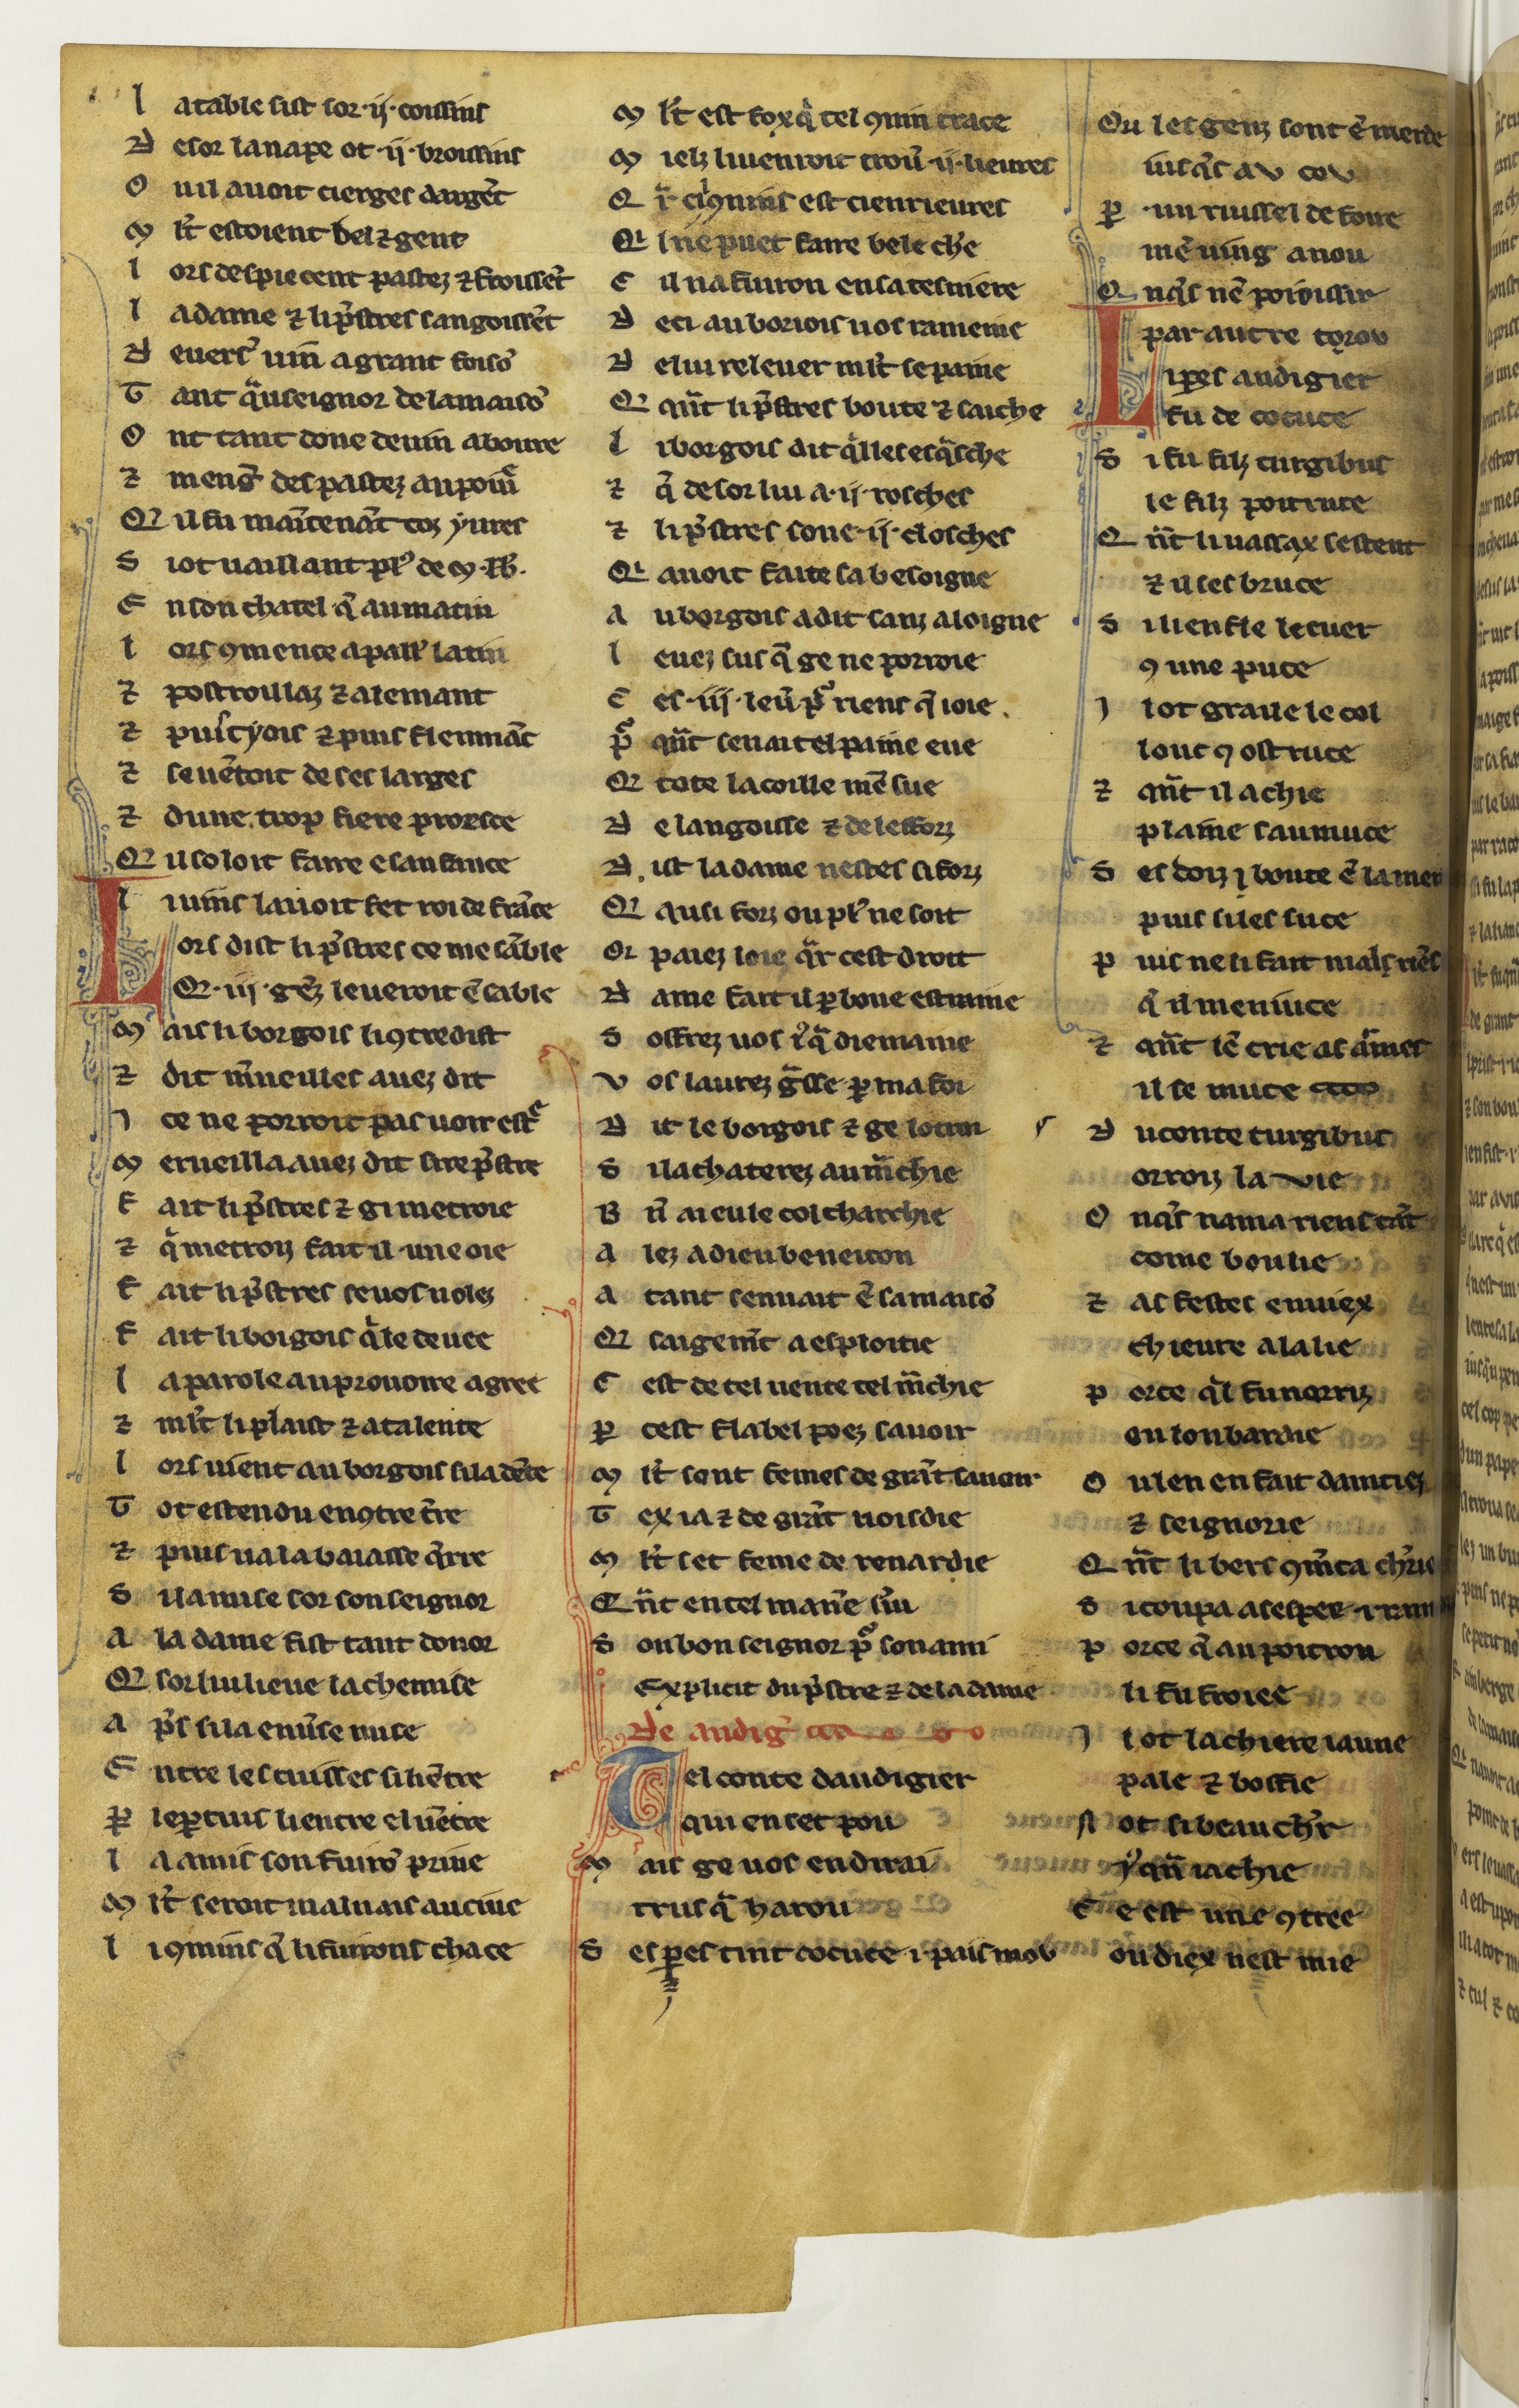 l a table sist sor .ij. coissins
D esor la nape ot .ij. broissins
O u il auoit cierges dargēt
M lt estoient bel ⁊ gent
l ors despiecent pastez ⁊ froissēt
l a dame ⁊ li p̄stres sangoissēt
D euerser uin a grant foisō
T ant qͣu seignor de la maisō
O nt tant done de uin a boiure
⁊ mengͥer des pastez au poiurͤ
Q uil fu maītenāt toz yures
S i ot uaillant plꝰ de M lib.
E n son chatel qͥ au matin
l ors ꝯmence a parlr̄ latin
⁊ postroillaz ⁊ alemant
⁊ puis tyois ⁊ puis flemmāc
⁊ se uētoit de ses larges
⁊ dune trop fiere proesce
Q uil soloit faire en sanfance
l i uins lauoit fet roi de frāce
Lors dist li p̄stres ce me sāble
Q .iij. gēz leueroit ēsable
M ais li borgois li ꝯtredist
⁊ dit m̄ueilles auez dit
J ce ne porroit pas uoir estrͤ
M erueilla auez dit sire p̄stre
F ait li p̄stres ⁊ gi metroie
⁊ qͥ metroiz fait il une oie
F ait li p̄stres se uos uolez
F ait li borgois qͣ le deuee
l a parole au prouoire agree
⁊ mlt̄ li plaist ⁊ atalente
l ors uient au borgois si ladēte
T ot estendu enꝯtre t̄re
⁊ puis ua la baiasse q̄rre
S i la mise sor son seignor
A la dame fist tant donor
Q sor lui lieue la chemise
A p̄s si la enu̇se mise
E ntre les cuisses si li ētre
P le ꝑtuis li entre el uētre
l a a mis son fuirō priue
M lt̄ seroit maluais au ciue
l i ꝯnins qͥ li fuirons chace
M lt̄ est fox qͥ tel ꝯnin trace
M ielz li uenroit trou̇ .ij. lieures
Q r̄ cil ꝯnins est cienrieures
Q l ne puet faire bele ch̄e
S il na fuiron en sa tesniere
D eci au borjois uos rameine
D e lui releuer mlt̄ se paine
Q qn̄t li p̄stres boute ⁊ sache
l i borgois dit qͥl les esqͣsche
⁊ qͥ desor lui a .ij. rosches
⁊ li p̄stres sone .ij. closches
Q auoit faite sa besoigne
A u borgois a dit sanz aloigne
l euez sus qͥ ge ne porroie
C es .iij. leu̇ pͦr riens qͥ ioie
pͦ qn̄t sen ai tel paine eue
Q tote la coille mē sue
D e langoisse ⁊ de lesforz
D ist la dame nestes si forz
Q ausi forz ou plꝰ ne soit
Or paiez loie qͣr cest droit
D ame fait il ꝑ bone estraine
S offrez uos jͮqͣ diemaine
V os laurez gͣsse ꝑ ma foi
D it le borgois ⁊ ge lotroi
S i lachaterez au mͣchie
B n̄ ai eu le col charchie
A lez a dieu beneicon
A tant sen uait ē sa maisō
Q saigemt̄ a esploitie
C est de tel uente tel mͣchie
P cest flabel poez sauoir
M lt̄ sont femes de grāt sauoir
T ex i a ⁊ de grāt uoisdie
M lt̄ set feme de renardie
Q n̄t en tel manie s̄ui
S on bon seignor pͦ son ami
Explicit du p̄stre ⁊ de la dame
De audigͥer
Tel conte daudigier
qui en set pou
M ais ge uos en dirai
trusqͣ harou
S es ꝑes tint cocuce .i. pais mov
Ou les genz sont ē merde
iusqͥs av cov
P .un ruissel de foire
mē uing a nou
O nqͥs nē poi oissir
par autre trov
L i peres audigier
fu de cocuce
S i fu filz turgibus
le filz poitruce
Q n̄t li uassax sestent
⁊ il ses bruce
S i li enfle le cuer
ꝯ une puce
J l ot graile le col
lonc ꝯ ostruce
⁊ qn̄t il a chie
plaine saumuce
S es doiz i boute ē la mer
puis si les suce
P uis ne li fait mals riēs
qͥ il meniuce
⁊ qn̄t lē crie as armes
il se muce
D u conte turgibus
orroiz la vie
O nqͥs nama riens tāt
come boulie
⁊ as festes enuiex
chieure alalie
P orce qͥl fu norriz
en lonbardie
O u len en fait daintiez
⁊ seignorie
Q n̄t li bers ꝯm̄ca ch̄rie
S i coupa a sespee
P orce qͥ au poitron
li fu froiee
J l ot la chiere iaune
pale ⁊ boffie
N ot si beau ch̄r
jͮqn̄ iachie
C e est une ꝯtree
ou diex nest mie